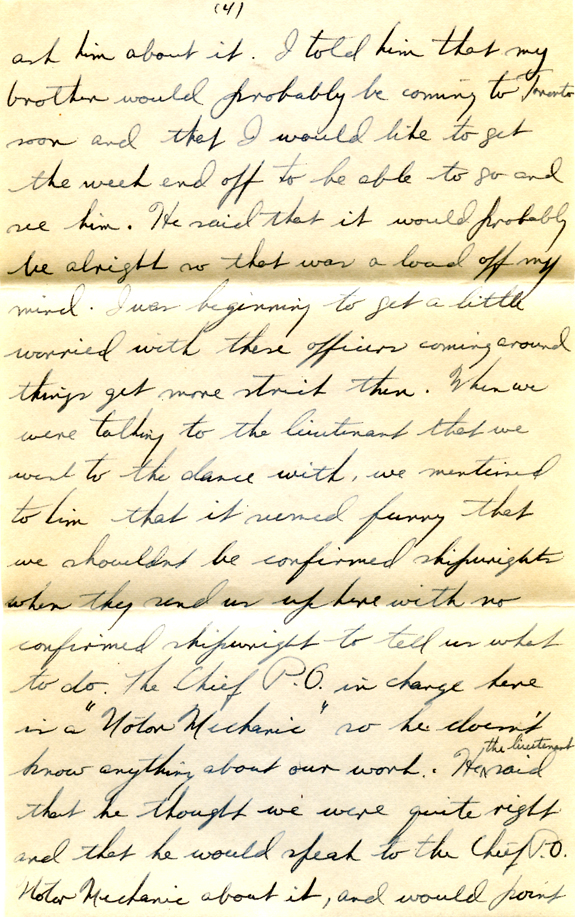 (4)
ask him about it. I told him that my
brother would probably be coming to Toronto
soon and that I would like to get
the week end off to be able to go and
see him. He said that it would probably
be alright so that was a load off my
mind. I was beginning to get a little
worried with these officers coming around
things get more strict then. When we
were talking to the lieutenant that we
went to the dance with, we mentioned
to him that it seemed funny that
we shouldnt be confirmed shipwrights
when they send us up here with no
confirmed shipwright to tell us what
to do. The Chief P.O. in charge here
is a "Motor Mechanic" so he doesn't
know anything about our work. He ^the lieutenant said
that he thought we were quite right
and that he would speak to the Chief P.O.
Motor Mechanic about it, and would point